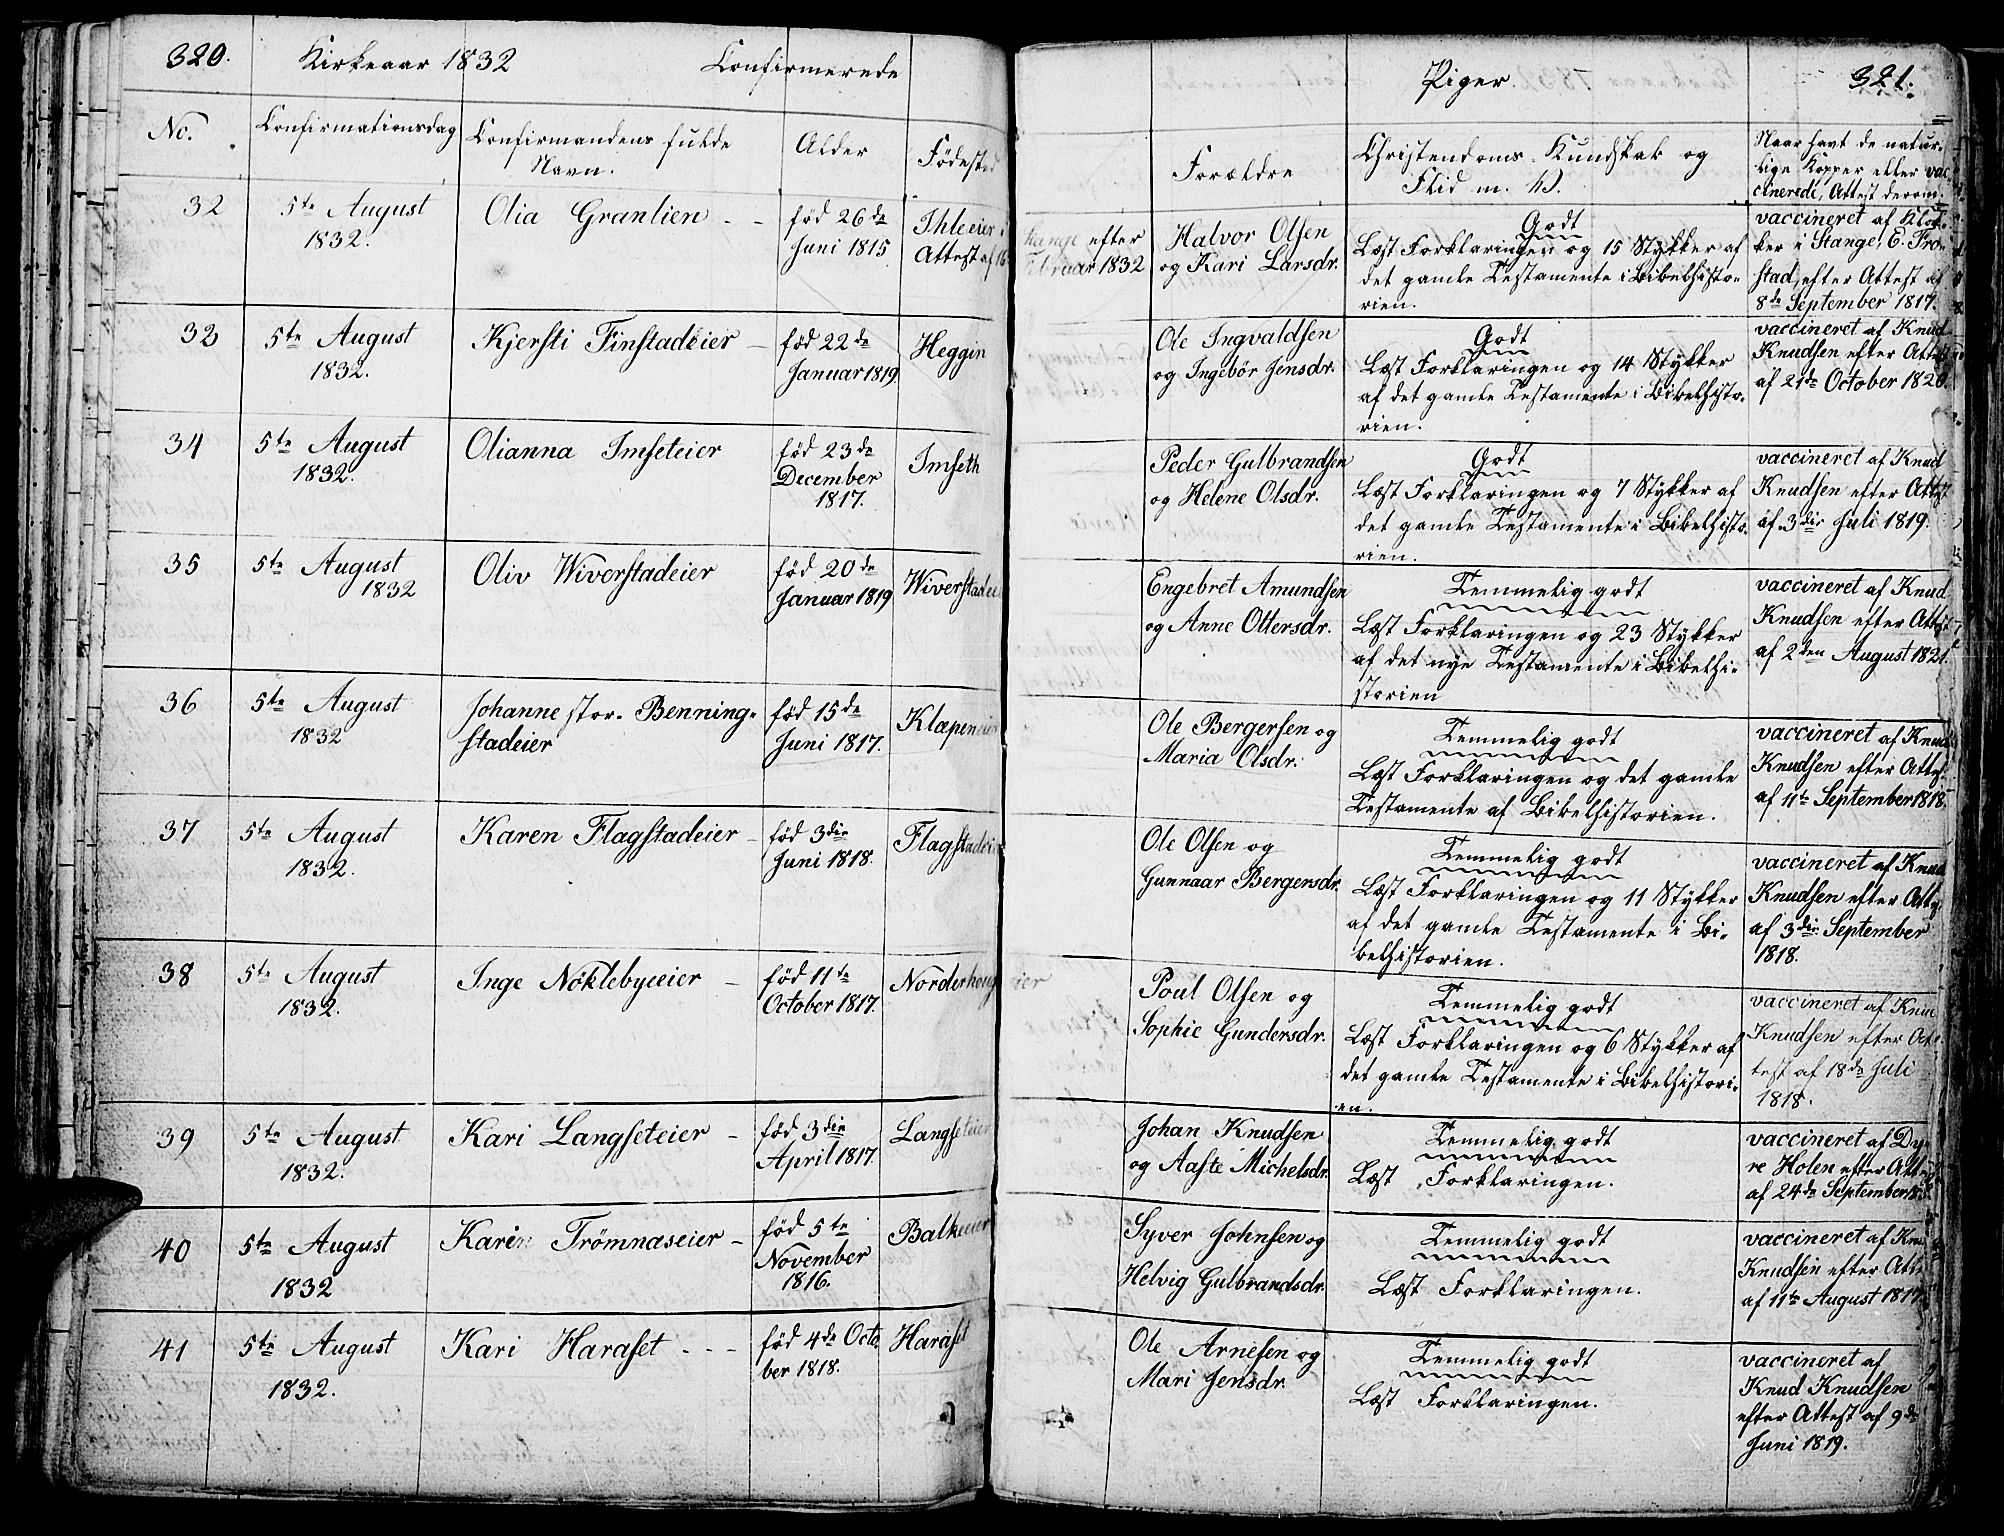 320.
Kirkeaar 1832
Confirmerede
No.
Confirmationsdag
Confirmandens fulde
Navn.
Alder
Fødested
32
5te August
1832.
Olia Granlien - -
fød 26de
Juni 1815
Ihleeier i
Attest af 16
33
5te August
1832.
Kjersti Finstadeier -
fød 22de
Januar 1819.
Heggen
34
5te August
1832.
Olianna Imseteier
fød 23de
December
1817.
Imseth
35
5te August
1832
Oliv Wiverstadeier
fød 20de
Januar 1819
Wiverstadeie
36
5te August
1832
Johanne stor. Benning-
stadeier
fød 15de
Juni 1817.
Klæpeneier
37
5te August
1832.
Karen Flagstadeier -
fød 3die
Juni 1818.
Flagstadeie
38
5te August
1832.
Inge Nöklebyeeier -
fød 11te
October 1817.
Norderhougseier
39
5te August
1832.
Kari Langseteier -
fød 3die
April 1817
Langseteier
40
5te August
1832
Karen Trömnæseier -
fød 5te
November
1816.
Balkeeier
41
5te August
1832.
Kari Haraset - - -
fød 4de Octo-
ber 1818.
Haraset
Piger
321.
Forældre
Christendoms. Kundskab og
Flid m. V.
Naar havt de natur-
lige Kopper eller vac-
cinerede, Attest derom.
Stange efter
Februar 1832
Halvor Olsen
og Kari Larsdr.
Godt
Læst Forklaringen og 15 Stykker af
det gamle Testamente i Bibelhisto-
rien.
vaccineret af Klok-
ker i Stange, E. Fro-
stad, efter Attest af
8de September 1817.
Ole Ingvaldsen
og Ingebör Jensdr.
Godt
Læst Forklaringen og 14 Stykker
af det gamle Testamente i Bibelhisto-
rien.
vaccineret af Knud
Knudsen efter Attest
af 21de October 1820.
Peder Gulbrandsen
og Helene Olsdr.
Godt
Læst Forklaringen og 7 Stykker af
det gamle Testamente i Bibelhisto-
rien.
vaccineret af Knud
Knudsen efter Attest
af 3die Juli 1819.
Engebret Amundsen
og Anne Ottersdr.
Temmelig godt
Læst Forklaringen og 23 Stykker
af det nye Testamente i Bibelhi-
storien
vaccineret af Knud
Knudsen efter Attest
af 2den August 1821.
Ole Bergersen og
Maria Olsdr.
Temmelig godt
Læst Forklaringen og det gamle
Testamente af Bibelhistorien.
vaccineret af Knud
Knudsen efter Attest
af 11te September 1818.
Ole Olsen og
Gunnaar Bergersdr.
Temmelig godt
Læst Forklaringen og 11 Stykker
af det gamle Testamente i Bi-
belhistorien.
vaccineret af Knud
Knudsen efter Attest
af 3die September
1818.
Poul Olsen og
Sophie Gundersdr.
Temmelig godt
Læst Forklaringen og 6 Stykker af
det gamle Testamente i Bibelhistori-
en.
vaccineret af Knud
Knudsen efter At-
test af 18de Juli
1818.
Johan Knudsen
og Aaste Michelsdr.
Temmelig godt
Læst Forklaringen.
vaccineret af Dy-
re Holen efter Attest
af 24de September
Syver Johnsen og
Helvig Gulbrandsdr.
Temmelig godt
Læst Forklaringen.
vaccineret af Knud
Knudsen efter Attest
af 11te August 1817.
Ole Arnesen og
Mari Jensdr.
Temmelig godt
Læst Forklaringen.
vaccineret af
Knud Knudsen
efter Attest af 9de
Juni 1819.